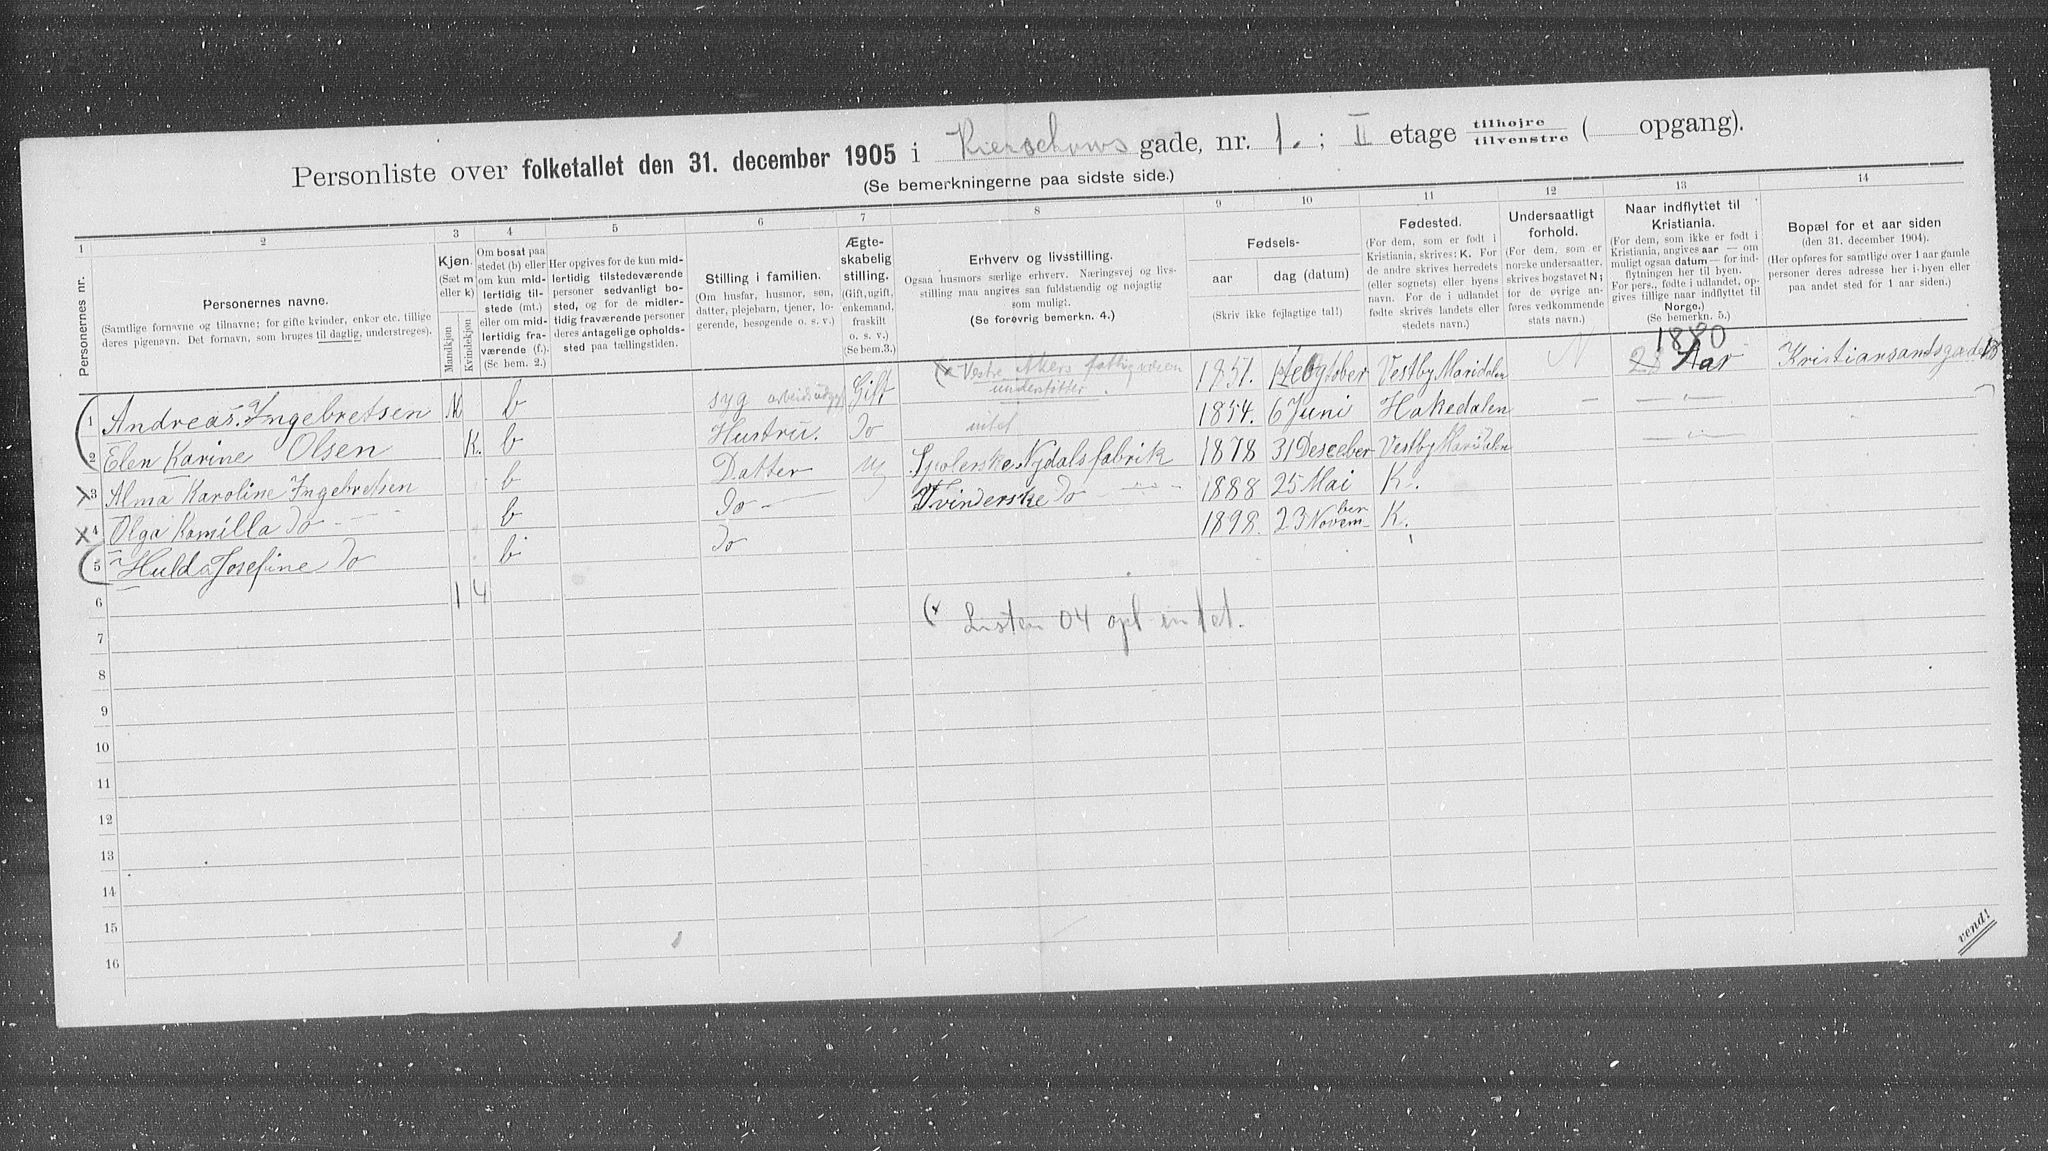 Personliste over folketallet den 31. december 1905 i Kierschows gade, nr. 1. ; II etage tilhøjre / tilvenstre ( opgang).
(Se bemerkningerne paa sidste side.)
1 2 3 4 5 6 7 8 9 10 11 12 13 14
Personernes nr.
Personernes navne.
(Samtlige fornavne og tilnavne; for gifte kvinder, enker etc. tillige deres pigenavn. Det fornavn, som bruges til daglig, understreges).
Kjøn.
(Sæt m eller k)
Mandkjøn
Kvindekjøn
Om bosat paa stedet (b) eller om kun midlertidig tilstede (mt.) eller om midlertidig fraværende (f.) (Se bem. 2.)
Her opgives for de kun midlertidig tilstedeværende personer sedvanligt bosted, og for de midlertidig fraværende personer deres antagelige opholdssted paa tællingstiden.
Stilling i familien.
(Om husfar, husmor, søn, datter, plejebarn, tjener, logerende, besøgende o. s. v.)
Ægteskabelig stilling.
(Gift, ugift, enkemand, fraskilt o. s. v.) (Se bem.3.)
Erhverv og livsstilling.
Ogsaa husmors særlige erhverv. Næringsvej og livsstilling maa angives saa fuldstændig og nøjagtig som muligt.
(Se forøvrig bemerkn. 4.)
Fødsels-
aar dag (datum)
(Skriv ikke fejlagtige tal!)
Fødested.
(For dem, som er født i Kristiania, skrives: K. For de andre skrives herredets (eller sognets) eller byens navn. For de i udlandet fødte skrives landets eller stedets navn.)
Undersaatligt forhold.
(For dem, som er norske undersaatter, skrives bogstavet N; for de øvrige anføres vedkommende stats navn.)
Naar indflyttet til Kristiania.
(For dem, som ikke er født i Kristiania, angives aar — om muligt ogsaa datum — for indflytningen her til byen. For pers., fødte i udlandet, opgives tillige naar indflyttet til Norge.)
(Se bemerkn. 5.)
Bopæl for et aar siden
(den 31. december 1904).
(Her opføres for samtlige over 1 aar gamle personer deres adresse her i byen eller paa andet sted for 1 aar siden.)
1 Andreas Ingebretsen M b syg Gift (x Vestre Akers fattigvæsen understøtter. 1851. Vestby Maridalen N 1880 23 Aar Kristiansandsgade 18
2 Elen Karine Olsen K. b Hustru. Do intet 1854. 6 Juni Hakedalen — " —
3 Alma Karoline Ingebretsen b Datter Ug Spolerske Nydalsfabrik 1878 31 Desceber Vestby Maridalen — " —
4 Olga Kamilla Do b Do Tvinderske Do 1888 25 Mai K.
5 Hulda Josefine Do b Do 1898. 23 November K.
6 1 4
(x Listen 04 opl intet.
7
8
9
10
11
12
13
14
15
16
vend!